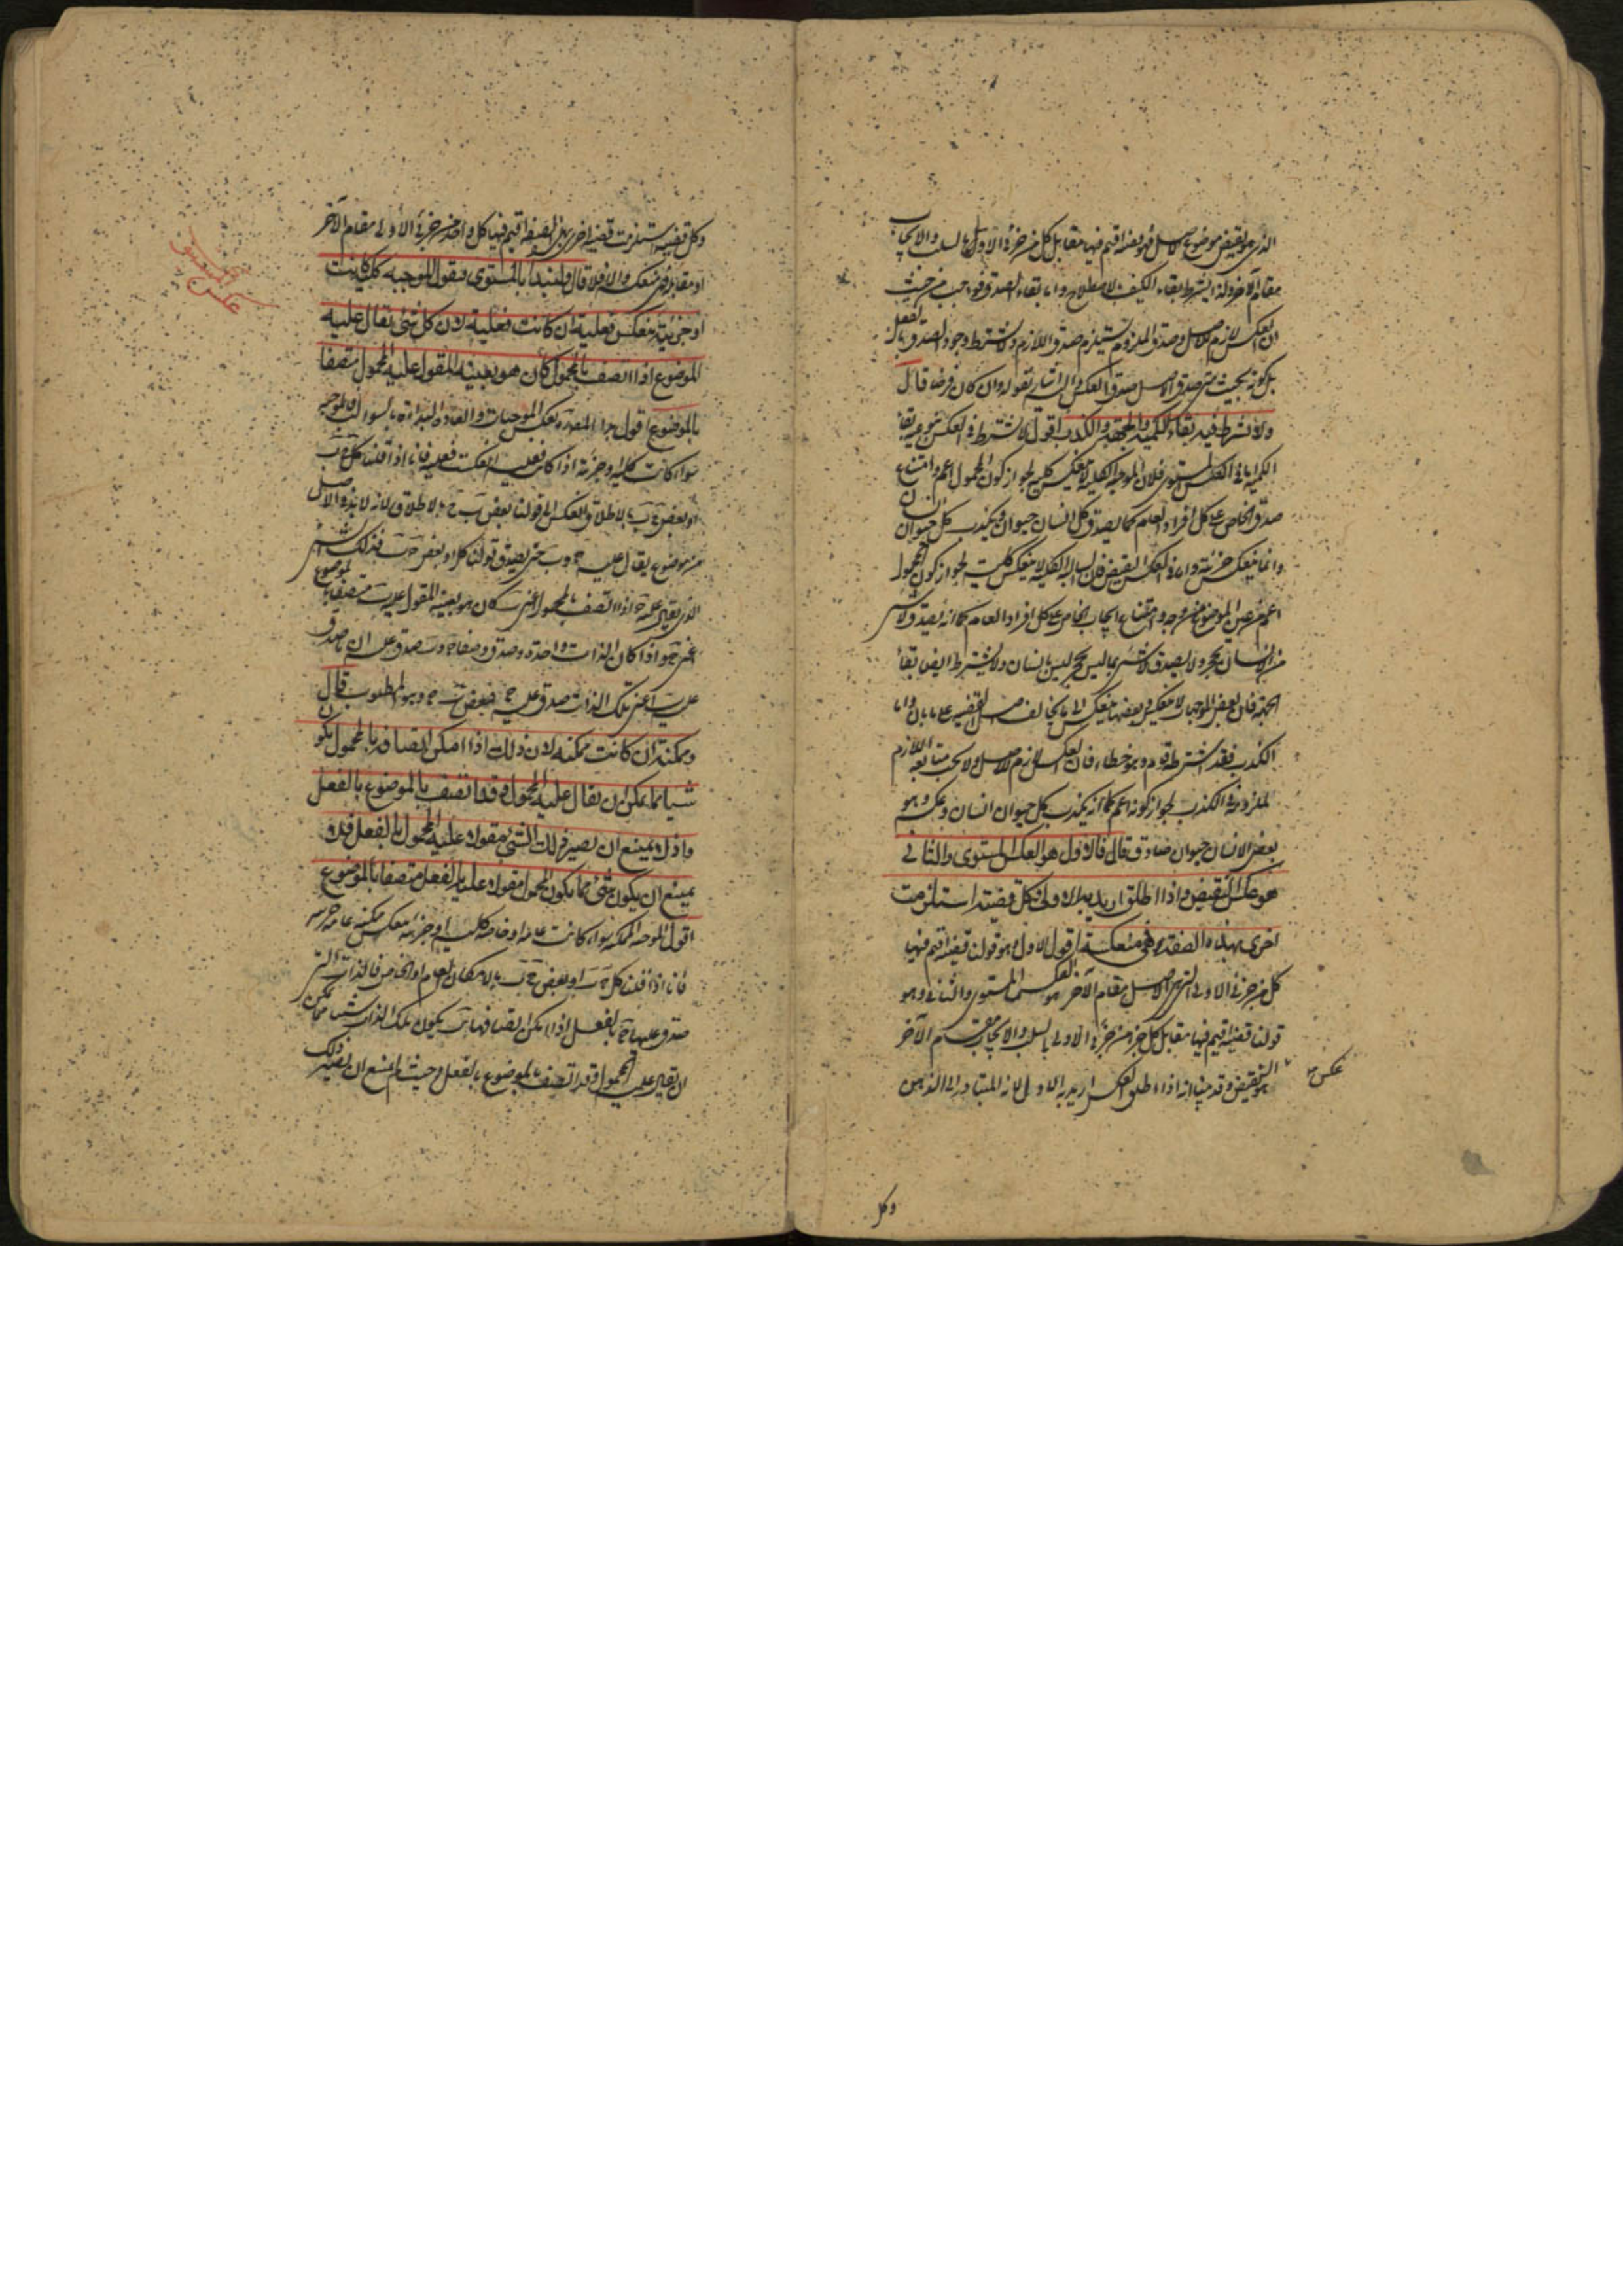 الذى هو نقيض موضوع الاصل فهو قضية اقيم فيها مقابل كل من جزئى الاولى بالسلب والايجاب
مقام الآخر وانما اشترط بقاء الكيف للاصطلاح واما بقاء الصدق فواجب من حيث
ان العكس لازم للاصل وصدق الملزوم يستلزم صدق اللازم ولا يشترط وجود الصدق بالفعل
بل كونه بحيث متى صدق الاصل صدق العكس واليه اشار بقوله وان كان فرضا قال
ولا يشترط فيه بقاء الكمية والجهة والكذب اقول لا يشترط فى العكس بنوعيه بقاء
الكمية اما فى العكس المستوى فلان الموجبة الكلية لا تنعكس كلية لجواز كون المحمول اعم وامتناع
صدق الخاص على كل افراد العام كما يصدق كل انسان حيوان ويكذب كل حيوان انسان
وانما ينعكس جزئية واما فى العكس النقيض فان السالبة الكلية لا تنعكس كلية لجواز كون المحمول
اعم من عين الموضوع من وجه وامتناع ايجاب الخاص على كل افراد العام كما انه يصدق لا شئ
من الانسان بحجر ولا يصدق لا شئ مما ليس بحجر ليس بانسان ولا يشترط ايضا بقاء
الجهة فان بعض الموجهات لا ينعكس وبعضها ينعكس الى ما يخالف اصل القضية على ما يأتى واما
الكذب فقد اشترطه قوم وهو خطاء فان العكس لازم للاصل ولا يجب متابعة اللازم
للملزوم فى الكذب لجواز كونه اعم كما انه يكذب كل حيوان انسان وعكسه وهو
بعض الانسان حيوان صادق قال فالاول هو العكس المستوى والثانى
هو عكس النقيض واذا اطلق اريد به الاولى وكل قضية استلزمت
اخرى بهذه الصفة فهى منعكسة اقول الاول وهو قولنا قضية اقيم فيها
كل من جزئى الاولى التى هى الاصل مقام الآخر هو العكس المستوى والثانى وهو
قولنا قضية اقيم فيها مقابل كل جزء من جزئى الاولى بالسلب والايجاب مقام الآخر
عكس
هو النقيض وقد بينا انه اذا اطلق العكس اريد به الاولى لانه المتبادر الى الذهن
وكل
وكل قضية استلزمت قضية اخرى بهذه الصفة اقيم فيها كل واحد من جزئى الاولى مقام الآخر
او مقابله فهى منعكسة والا فلا قال ولنبدأ بالمستوى فنقول الموجبة كلية كانت
او جزئية تنعكس فعلية ان كانت فعلية لان كل شئ يقال عليه
الموضوع اذا اتصف بالمحمول كان هو بعينه المقول عليه المحمول متصفا
بالموضوع اقول
سواء كانت كلية او جزئية اذا كانت فعلية انعكست فعلية فانا اذا قلنا كل ج ب
او بعض ج ب بالاطلاق انعكس الى قولنا بعض ب ج بالاطلاق لانه لا بد فى الاصل
من موضوع يقال عليه ج و ب حتى يصدق قولنا كل او بعض ج ب فذلك الشئ
الذى يقال عليه ج اذا اتصف بالمحمول اعنى ب كان هو بعينه المقول عليه ب متصفا بالموضوع
اعنى ج واذا كان الذات واحدة وصدق وصفا ج و ب صدق على ان ما صدق
عليه ب اعنى تلك الذات صدق عليه ج فبعض ب ج وهو المطلوب قال
وممكنة ان كانت ممكنة لان ذلك اذا امكن اتصافه بالمحمول يكون
شيئا مما يمكن ان يقال عليه المحمول وقد اتصف بالموضوع بالفعل
واذ لا يمتنع ان يصير ذلك الشئ مقولا عليه المحمول بالفعل فلا
يمتنع ان يكون شئ مما يكون المحمول مقولا عليه بالفعل متصفا بالموضوع
اقول الموجبة الممكنة سواء كانت عامة او خاصة كلية او جزئية تنعكس ممكنة عامة جزئية
فانا اذا قلنا كل ج ب او بعض ج ب بالامكان العام او الخاص فالذات التى
صدق عليها ج بالفعل اذا امكن اتصافها بب يكون تلك الذات شيئا مما يمكن
ان يقال عليه المحمول وقد اتصف بالموضوع بالفعل وحيث لم يمتنع ان يصير ذلك
عكس المستوى